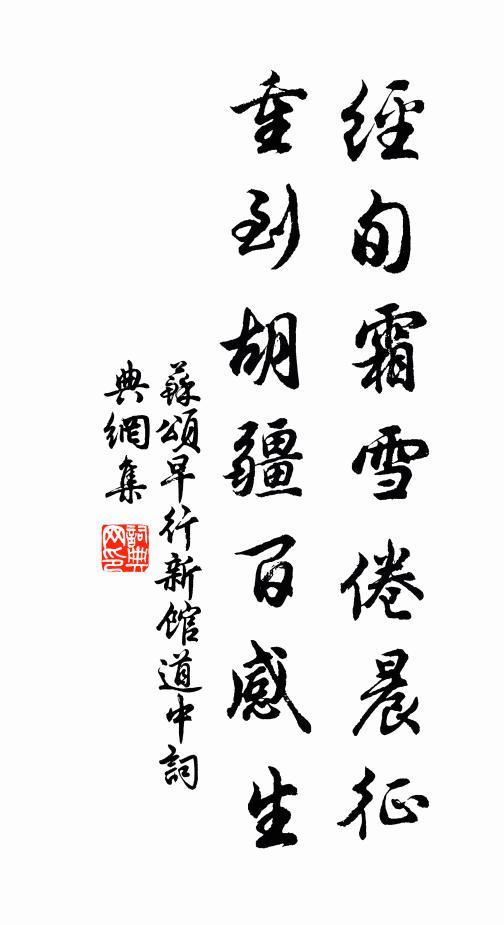 經旬霜雪倦晨征
重到胡疆百感生
蘇頌早行新館道中詞
典網集
詞典
网印